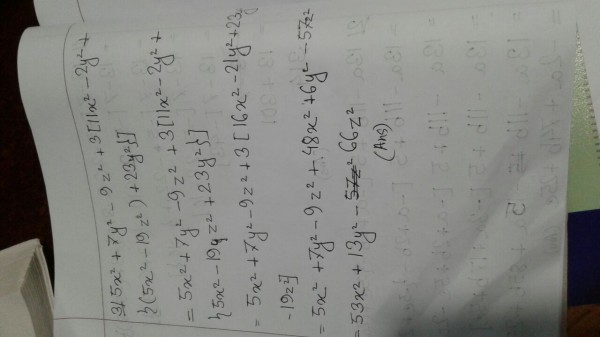 3) 5x² + 7y² - 9z² + 3 [11x² - 2y² +
{(5x² - 19z²) + 23y²}]
= 5x² + 7y² - 9z² + 3 [11x² - 2y² +
{5x² - 19z² + 23y²}]
= 5x² + 7y² - 9z² + 3 [16x² - 21y² + 23y
- 19z²]
= 5x² + 7y² - 9z² + 48x² + 6y² - 57z²
= 53x² + 13y² - 66z²
(Ans)